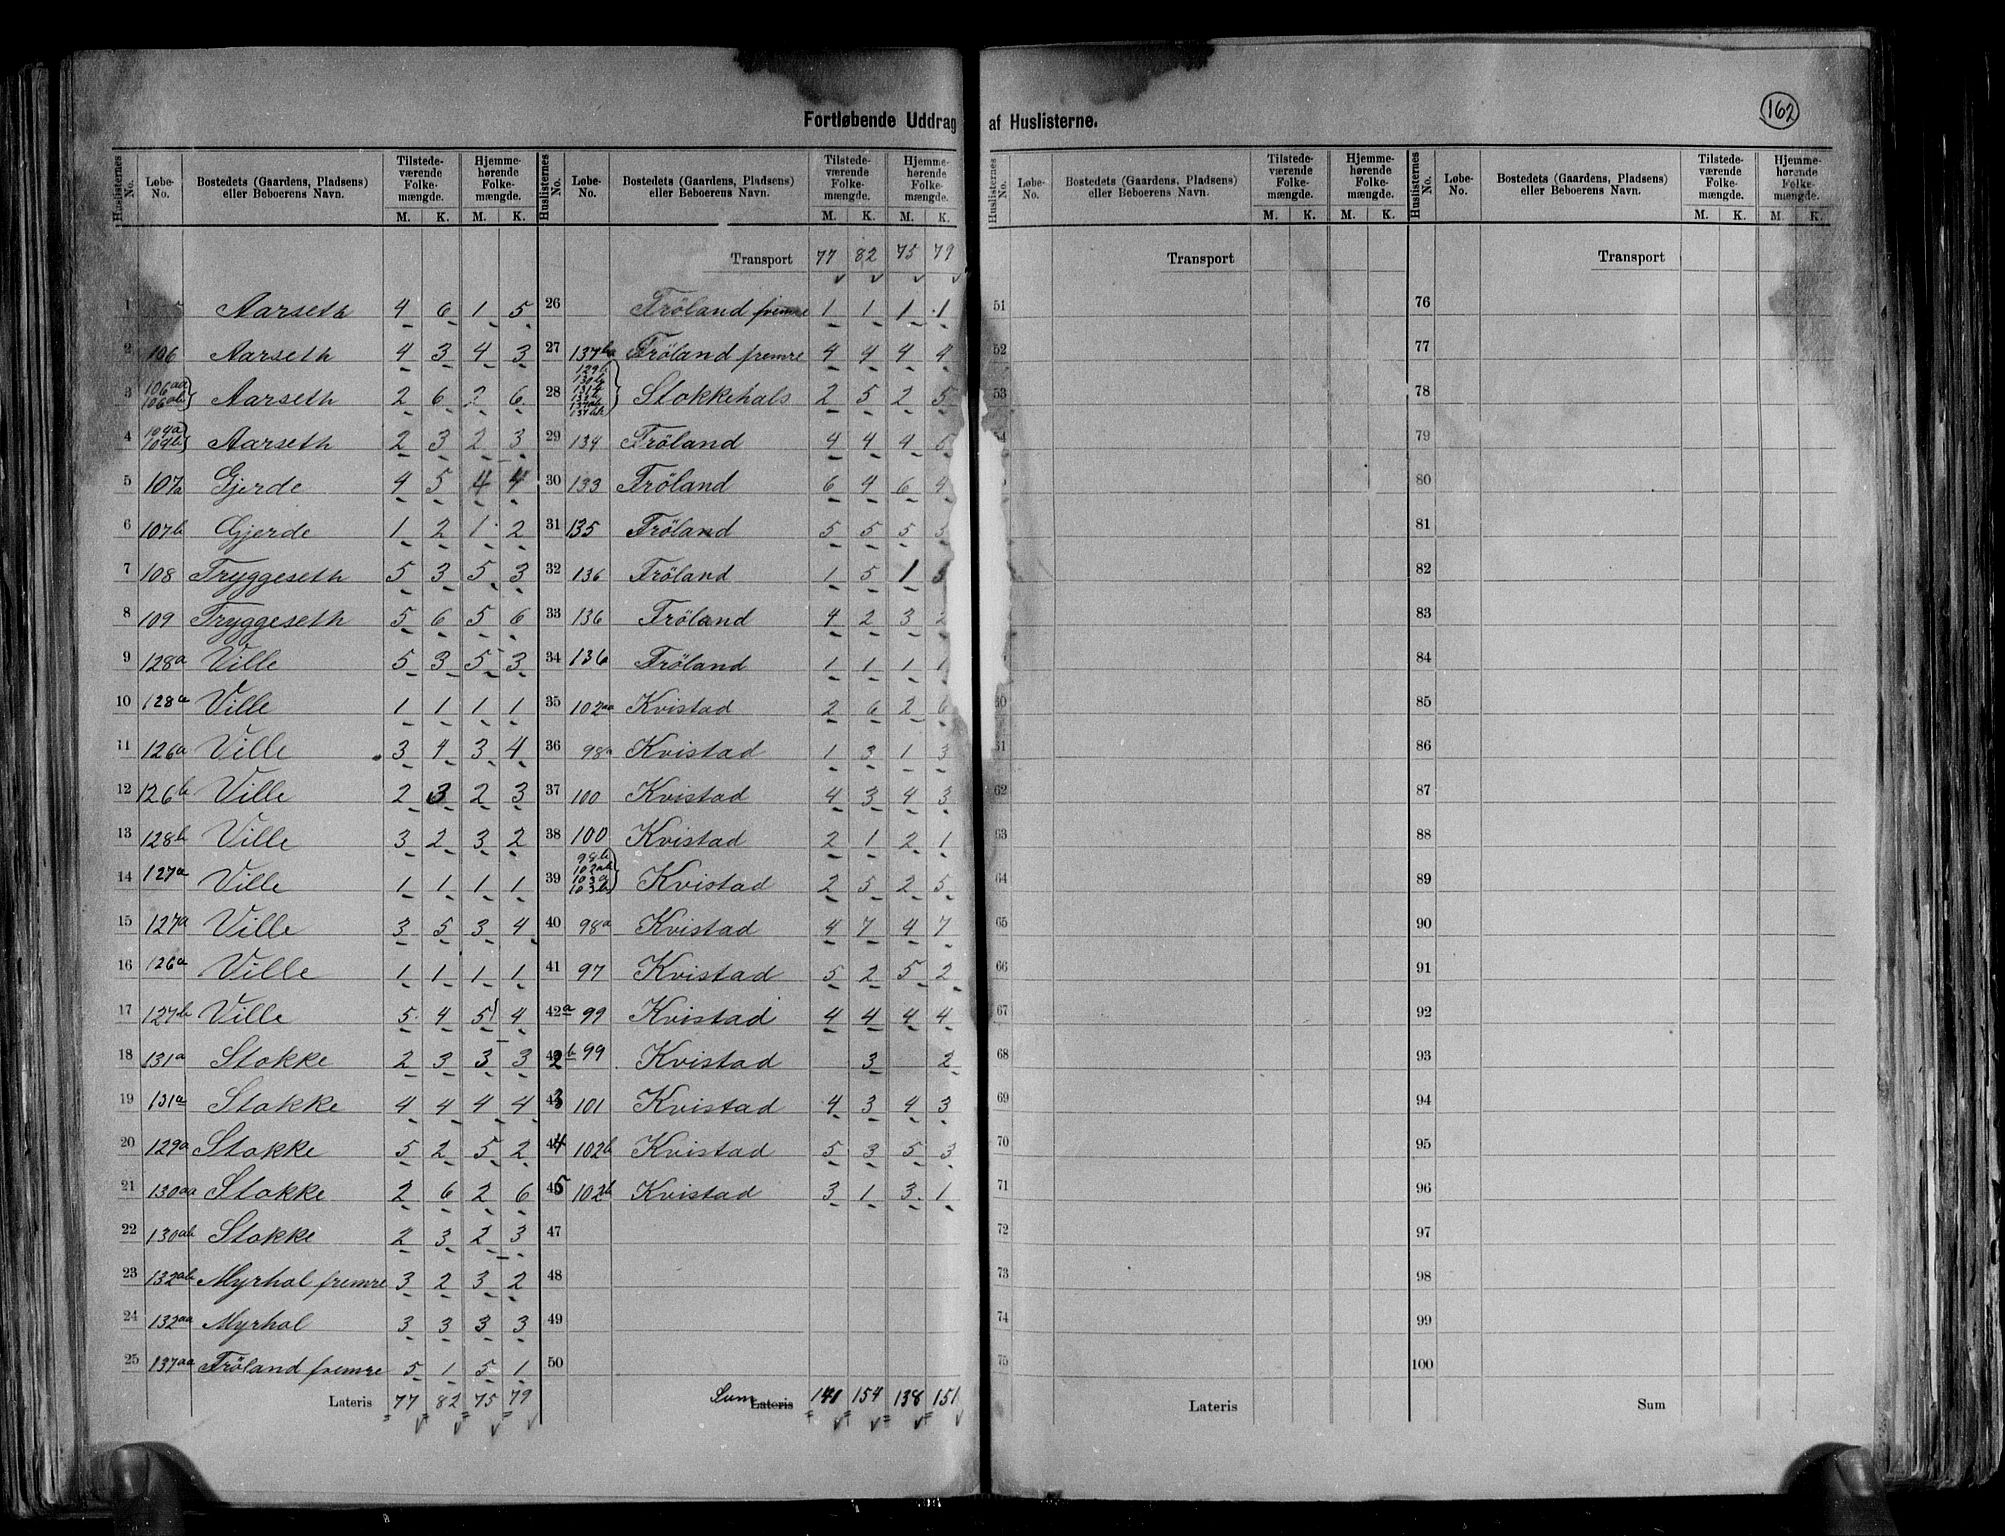 Fortløbende Uddrag af Huslisterne.
162
Huslisternes No. Løbe-No. Bostedets (Gaardens, Pladsens) eller Beboerens Navn. Tilstedeværende Folkemængde. M. K. Hjemmehørende Folkemængde. M. K.
1 Aarseth 4 6 1 5
2 106 Aarseth 4 3 4 3
3 106aa 106ab } Aarseth 2 6 2 6
4 104a 104b } Aarseth 2 3 2 3
5 107a Gjerde 4 5 4 4
6 107b Gjerde 1 2 1 2
7 108 Tryggeseth 5 3 5 3
8 109 Tryggeseth 5 6 5 6
9 128a Ville 5 3 5 3
10 128a Ville 1 1 1 1
11 126a Ville 3 4 3 4
12 126b Ville 2 3 2 3
13 128b Ville 3 2 3 2
14 127a Ville 1 1 1 1
15 127a Ville 3 5 3 4
16 126a Ville 1 1 1 1
17 127b Ville 5 4 5 4
18 131a Stokke 2 3 3 3
19 131a Stokke 4 4 4 4
20 129a Stokke 5 2 5 2
21 130aa Stokke 2 6 2 6
22 130ab Stokke 2 3 2 3
23 132ab Myrhol fremre 3 2 3 2
24 132aa Myrhol 3 3 3 3
25 137aa Fröland fremre 5 1 5 1
Lateris 77 82 75 79
Huslisternes No. Løbe-No. Bostedets (Gaardens, Pladsens) eller Beboerens Navn. Tilstedeværende Folkemængde. M. K. Hjemmehørende Folkemængde. M. K.
Transport 77 82 75 79
26 Fröland fremre 1 1 1 1
27 137ba Fröland fremre 4 4 4 4
28 129b 130b Stokkehals 2 5 2 5
29 134 Fröland 4 4 4
30 133 Fröland 6 4 6 4
31 135 Fröland 5 5 5 5
32 136 Fröland 1 5 1 5
33 136 Fröland 4 2 3 2
34 136 Fröland 1 1 1 1
35 102aa Kvistad 2 6 2 6
36 98a Kvistad 1 3 1 3
37 100 Kvistad 4 3 4 3
38 100 Kvistad 2 1 2 1
39 98b 102ab 103a 103b } Kvistad 2 5 2 5
40 98a Kvistad 4 7 4 7
41 97 Kvistad 5 2 5 2
42a 99 Kvistad 4 4 4 4
42b 99 Kvistad 3 2
43 101 Kvistad 4 3 4 3
44 102b Kvistad 5 3 5 3
45 102b Kvistad 3 1 3 1
47
48
49
50
Sum Lateris 141 154 138 151
Huslisternes No. Løbe-No. Bostedets (Gaardens, Pladsens) eller Beboerens Navn. Tilstedeværende Folkemængde. M. K. Hjemmehørende Folkemængde. M. K.
Transport
51
52
53
54
60
61
62
63
64
65
66
67
68
69
70
71
72
73
74
75
Lateris
Huslisternes No. Løbe-No. Bostedets (Gaardens, Pladsens) eller Beboerens Navn. Tilstedeværende Folkemængde. M. K. Hjemmehørende Folkemængde. M. K.
Transport
76
77
78
79
80
81
82
83
84
85
86
87
88
89
90
91
92
93
94
95
96
97
98
99
100
Sum